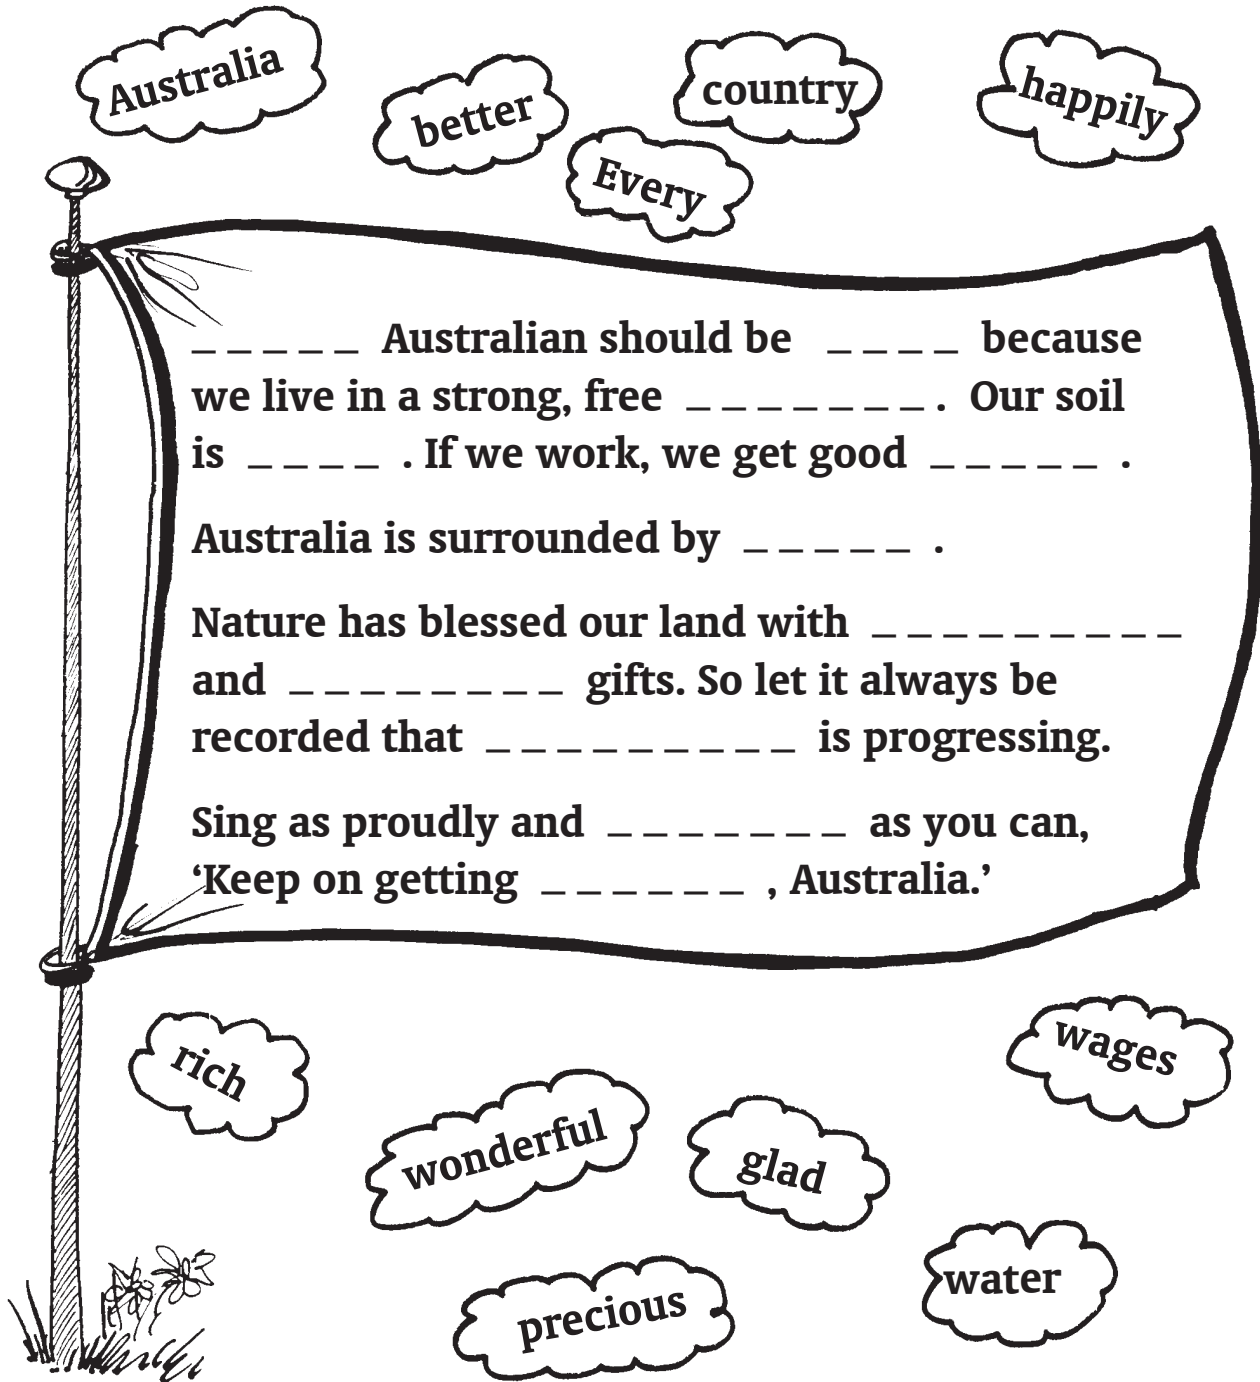 Australia
better
country
happily
Every
_ _ _ _ _ Australian should be _ _ _ _ because
we live in a strong, free _ _ _ _ _ _ _. Our soil
is _ _ _ _ . If we work, we get good _ _ _ _ _ .
Australia is surrounded by _ _ _ _ _ .
Nature has blessed our land with _ _ _ _ _ _ _ _ _
and _ _ _ _ _ _ _ _ gifts. So let it always be
recorded that _ _ _ _ _ _ _ _ _ is progressing.
Sing as proudly and _ _ _ _ _ _ _ as you can,
‘Keep on getting _ _ _ _ _ _ , Australia.’
rich
wages
wonderful
glad
water
precious